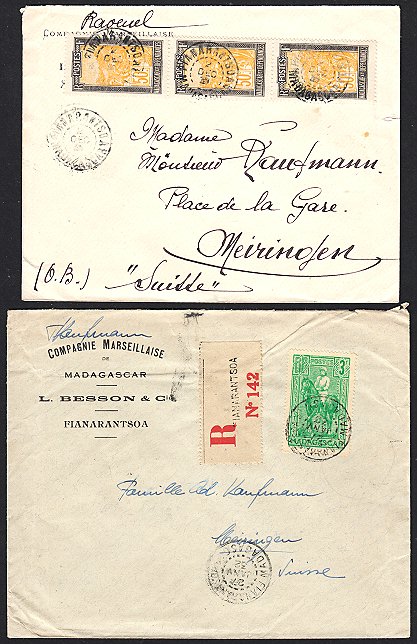 Ravenel
COMPAGNIE MARSEILLAISE
POSTES
POSTES
POSTES
FIANARANTSOA
Madame
Monsieur Kaufmann.
Place de la Gare.
Meiringen
(O.B.) "Suisse"
Kaufmann
COMPAGNIE MARSEILLAISE
DE
MADAGASCAR
L. BESSON & Co
FIANARANTSOA
R
FIANARANTSOA
No 142
3F
MADAGASCAR
Famille Ad. Kaufmann
Meiringen
Suisse